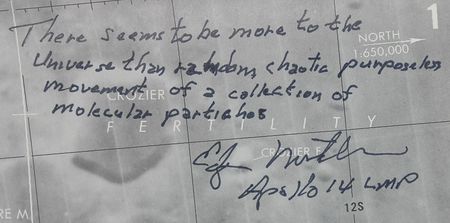 There seems to be more to the
1
NORTH
1:650,000
Universe than random, chaotic purposeless
movement of a collection of
CROZIER
molecular partiahos
FERTILITY
CROZIER F
Apollo 14 LMP
RE M.
12S